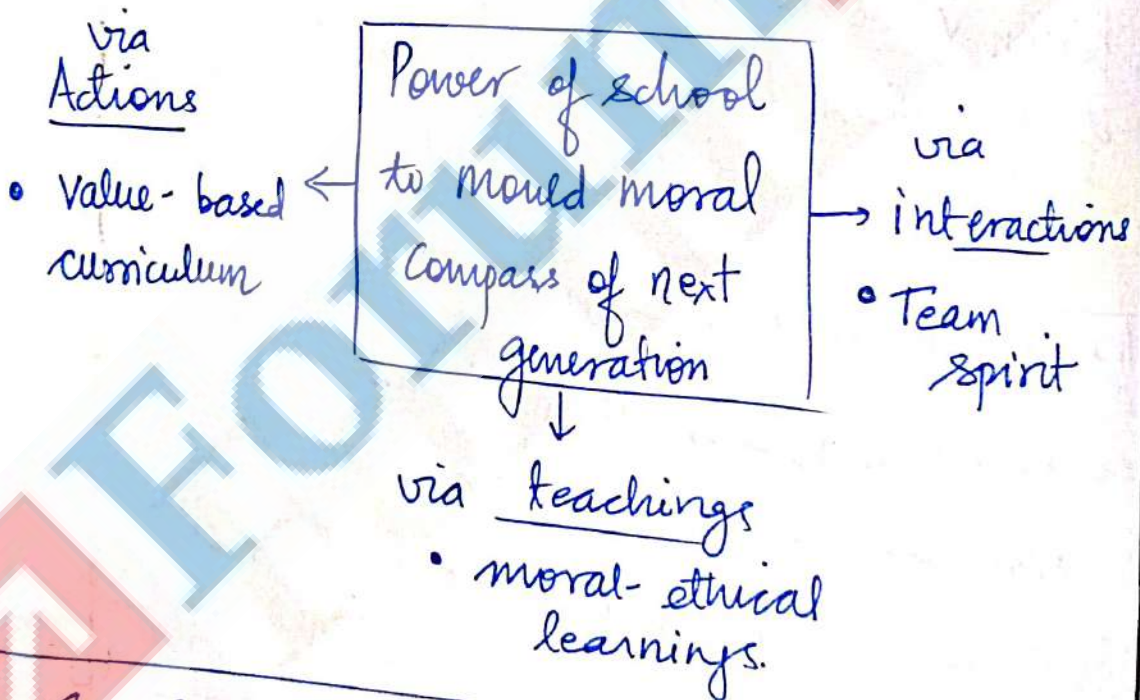 via
Actions
• Value-based
curriculum
Power of school
to mould moral
Compass of next
generation
via
interactions
• Team
spirit
via teachings
• moral-ethical
learnings.
Forum